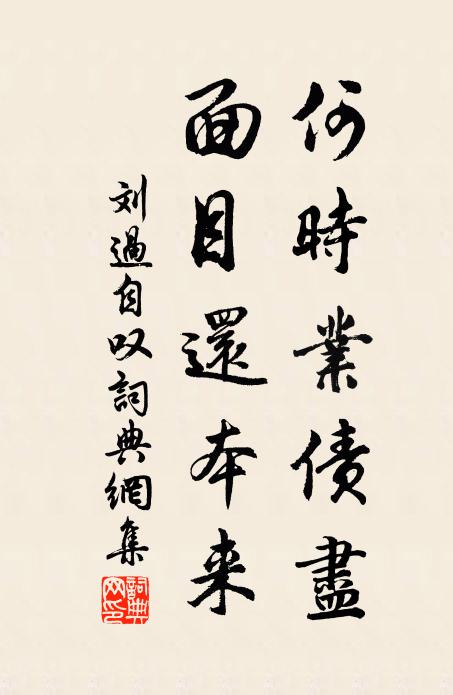 何時業債盡
面目還本来
刘過自叹詞典網集
詞典网印